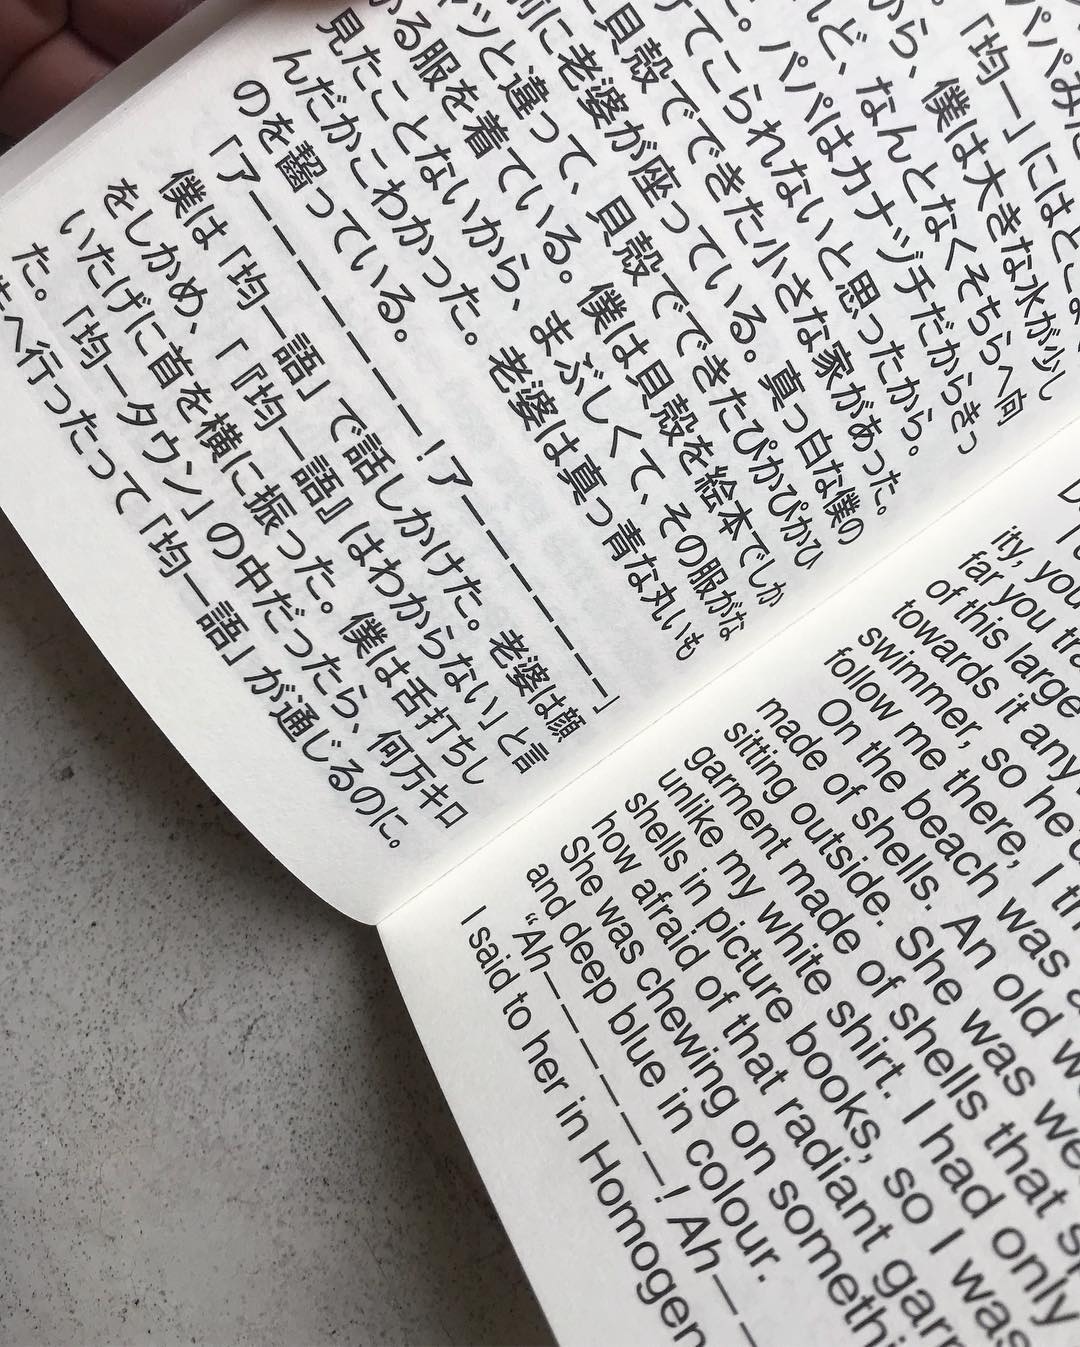 パパみた
。「均一」にはどこ
から、僕は大きな水が少し
れど、なんとなくそちらへ向
た。パパはカナヅチだからきっ
てこられないと思ったから。
貝殻でできた小さな家があった。
前に老婆が座っている。真っ白な僕の
ャツと違って、貝殻でできたぴかぴかひ
かる服を着ている。僕は貝殻を絵本でしか
見たことないから、まぶしくて、その服がな
んだかこわかった。老婆は真っ青な丸いも
のを齧っている。
「アーーーーーーー！アーーーーーーー」
僕は「均一語」で話しかけた。老婆は顔
をしかめ、「『均一語』はわからない」と言
いたげに首を横に振った。僕は舌打ちし
た。「均一タウン」の中だったら、何万キロ
へ行ったって「均一語」が通じるのに。
ity, you
far you tra
of this large
towards it any
swimmer, so he
follow me there, I th
On the beach was a
made of shells. An old w
sitting outside. She was we
garment made of shells that s
unlike my white shirt. I had only
shells in picture books, so I was
how afraid of that radiant garm
She was chewing on somethi
and deep blue in colour.
“Ah——————! Ah——
I said to her in Homogen